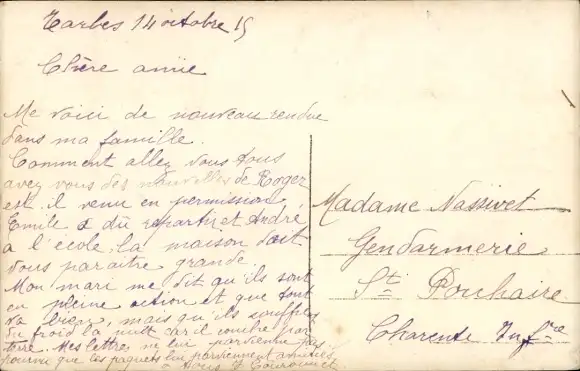 Tarbes 14 octobre 15
Chère amie
Me voici de nouveau rendue
dans ma famille.
Comment allez vous tous
avez vous des nouvelles de Roger
est il venu en permission
Emile a dû repartir et André
à l'école, la maison doit
vous paraître grande.
Mon mari me dit qu'ils sont
en pleine action et que tout
va bien, mais qu'ils souffrent
du froid la nuit car il couche par
terre. Mes lettres ne lui parviennent pas
pourvu que les paquets lui parviennent amitiés
à tous
Madame Nassivet
Gendarmerie
St Porchaire
Charente Infre